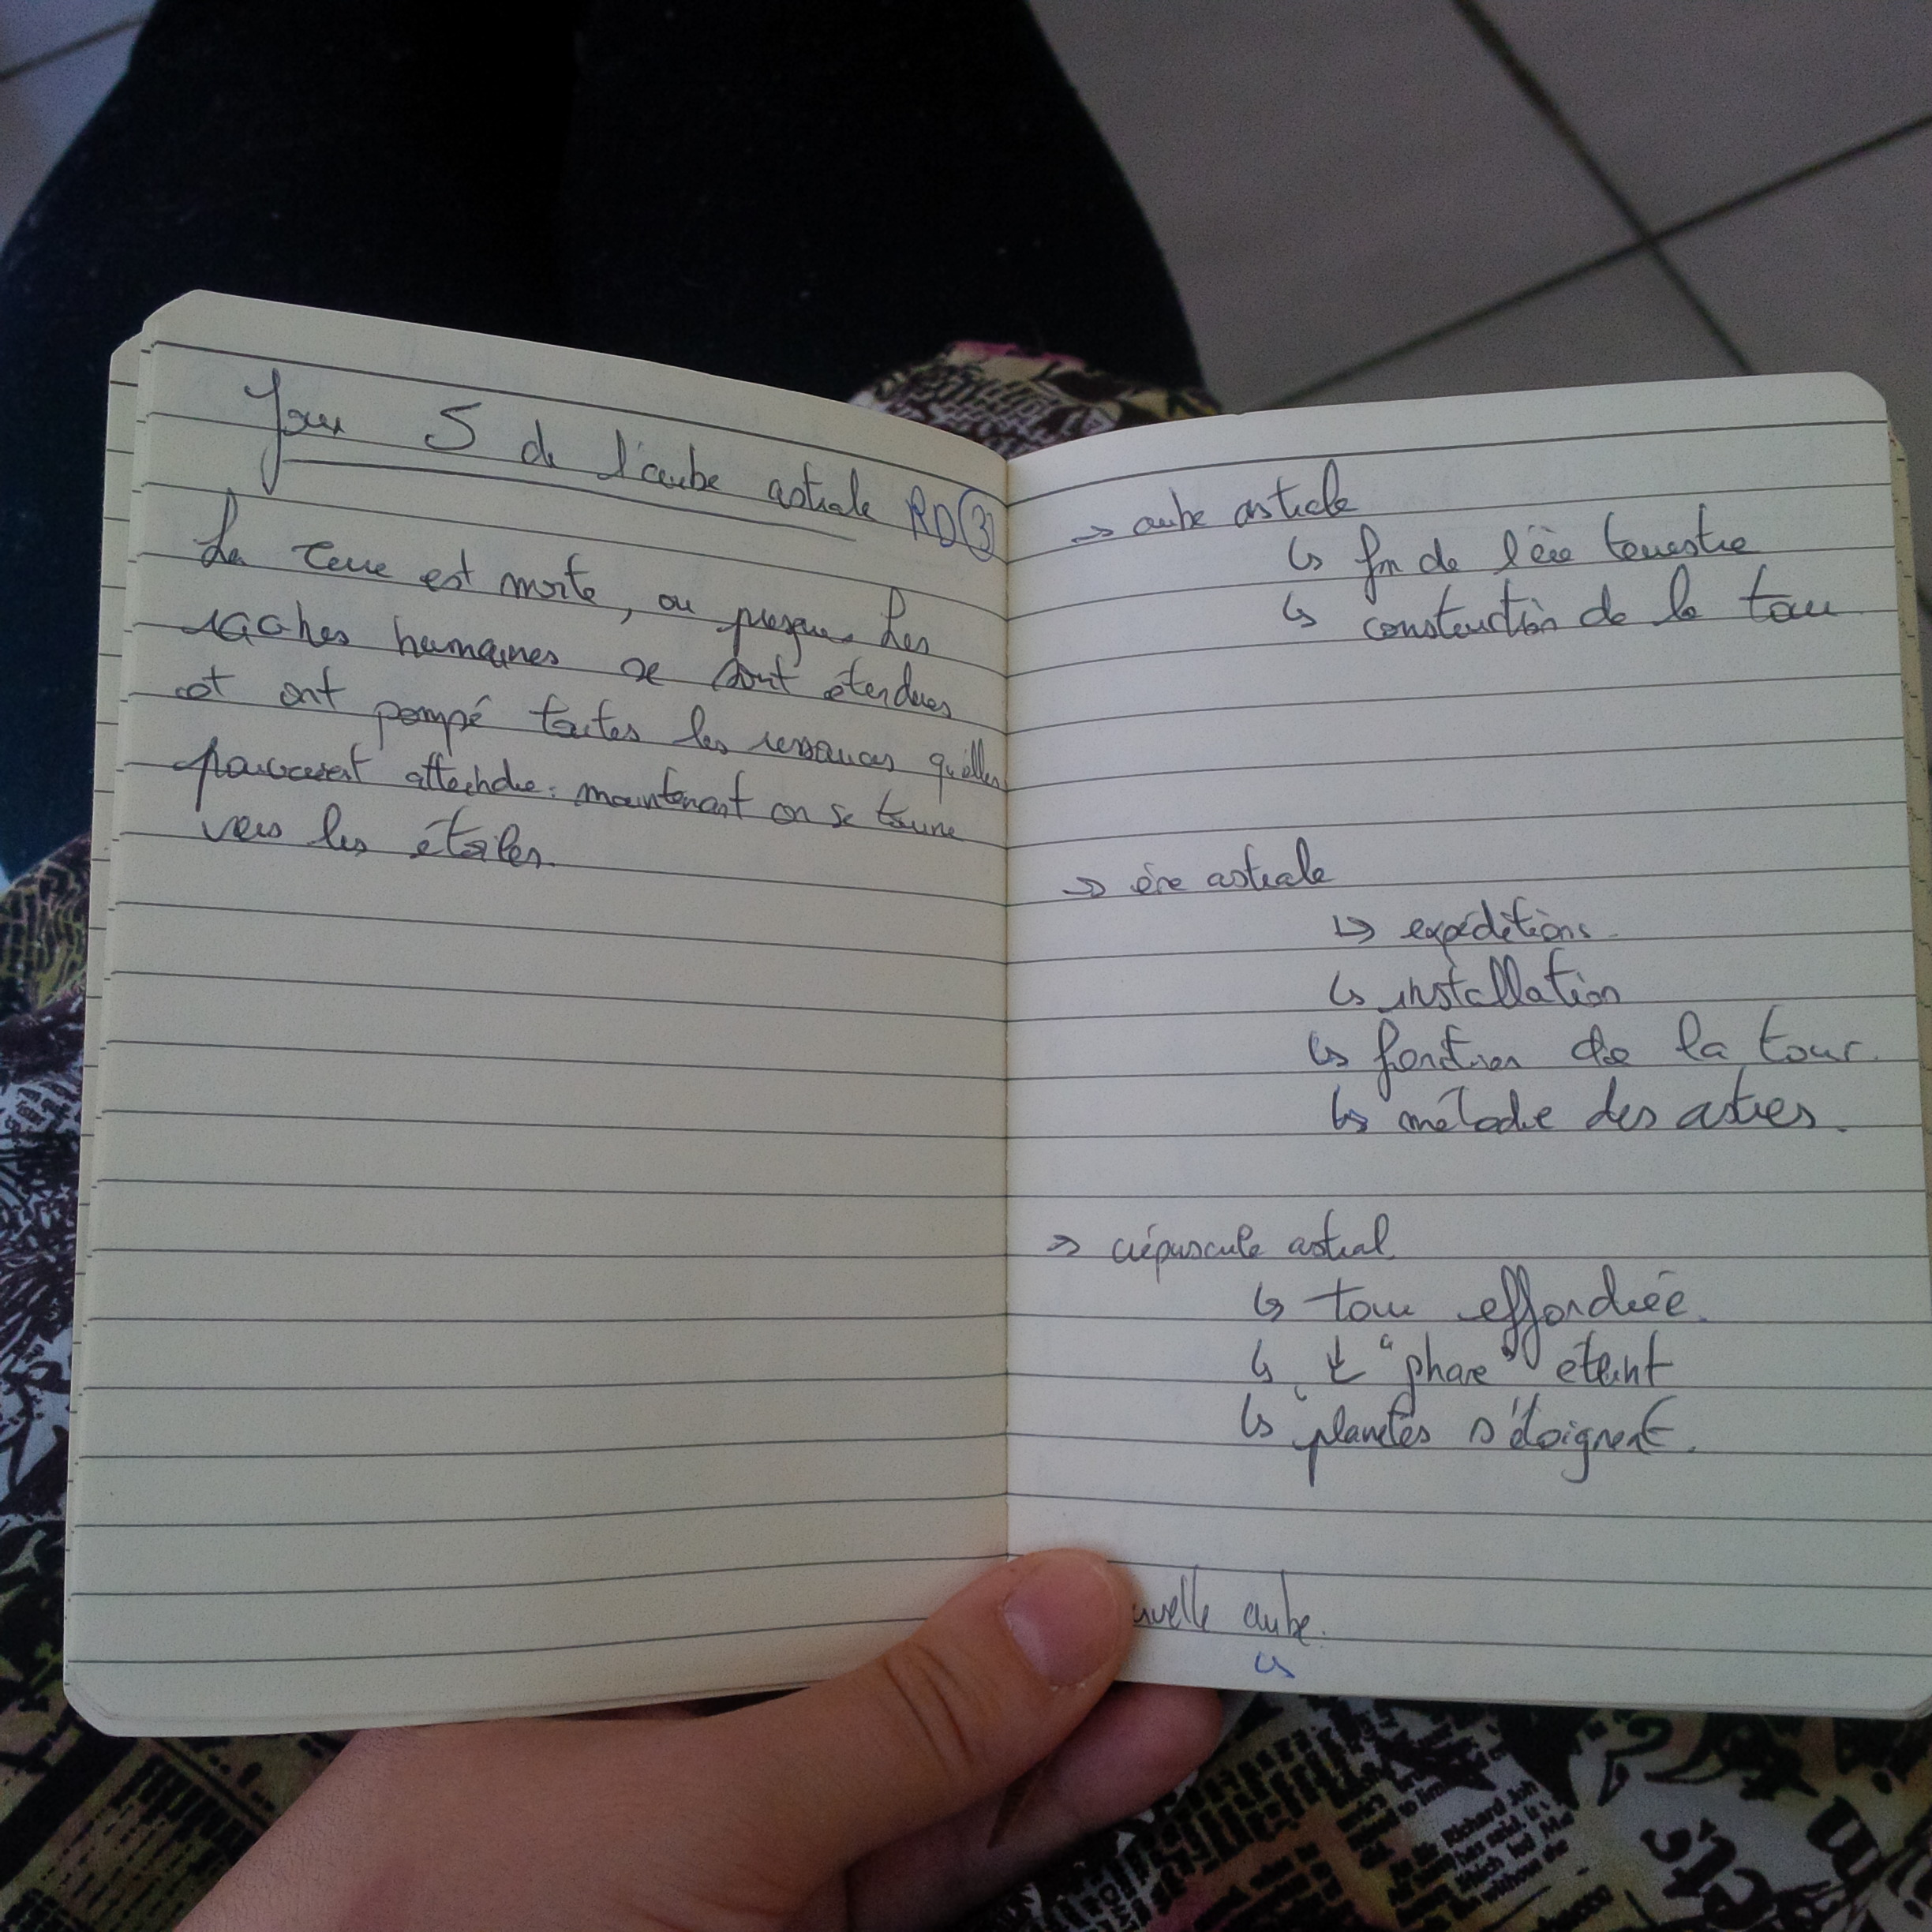 Jour 5 de l'aube astrale RD 3
La Terre est morte, ou presque. Les
racines humaines se sont étendues
et ont pompé toutes les ressources qu'elles
pouvaient atteindre : maintenant on se tourne
vers les étoiles.
→ aube astrale
↳ fin de l'ère terrestre
↳ construction de la tour
→ ère astrale
↳ expéditions.
↳ installation
↳ fonction de la tour.
↳ mélodie des astres.
→ crépuscule astral
↳ tour effondrée.
↳ "phare" éteint
↳ planètes s'éloignent.
uvelle aube.
↳